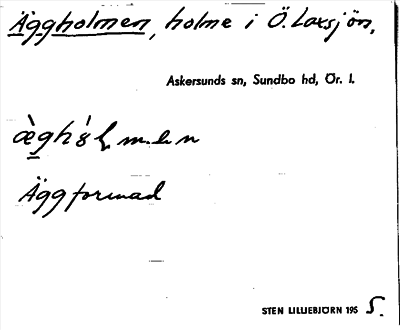 Äggholmen, holme i Ö. Laxsjön,
Askersunds sn, Sundbo hd, Ör. l.
Äggformad
STEN LILLIEBJÖRN 195 5.